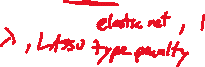 elastic net, 1
λ, LASSO type penalty